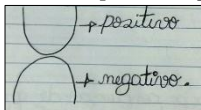 positivo
negativo.